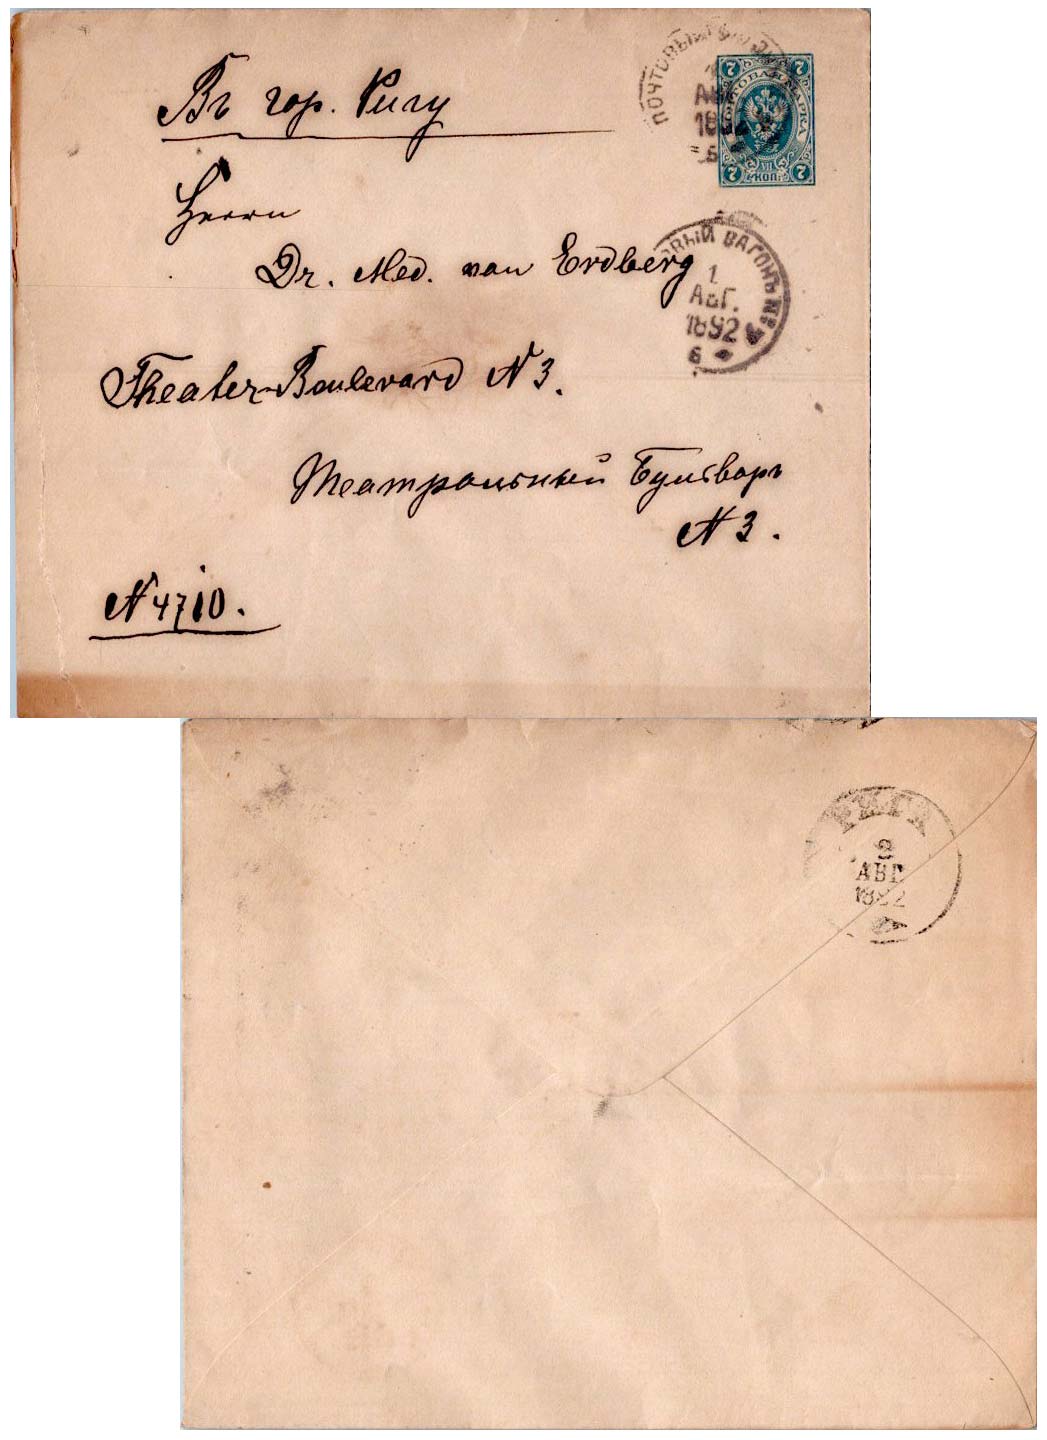 Въ гор. Ригу
ПОЧТОВЫЙ
АВГ
189
6
7 7
ПОЧТОВАЯ МАРКА
7 VII 7
КОП.
Herrn
Dr. Med. von Erdberg
ОВЫЙ ВАГОНЪ №
1
АВГ.
1892
6
Theater-Boulevard N 3.
Театральный Бульваръ
N 3.
N 4710.
РИГА
2
АВГ
1892